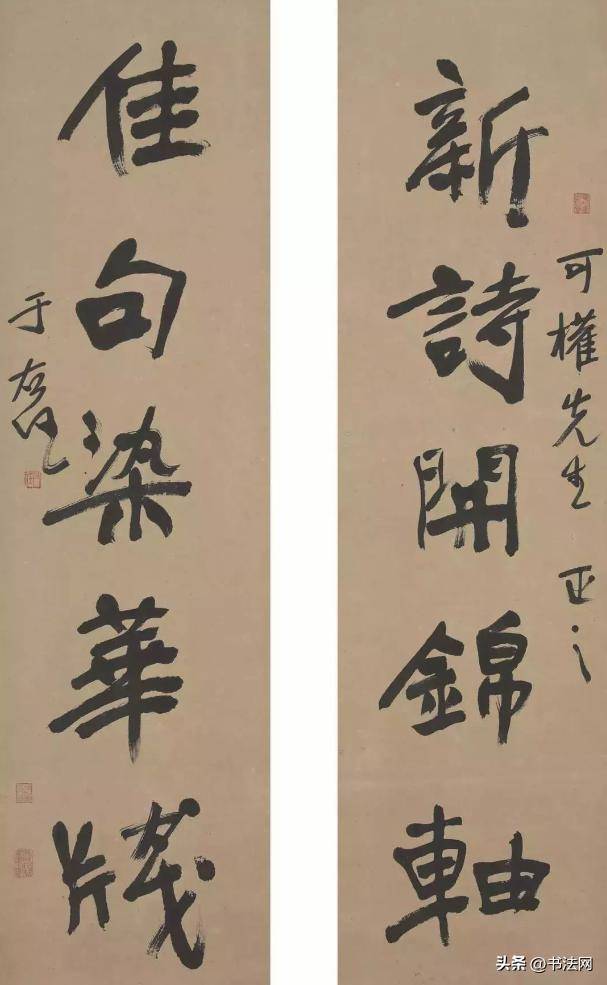 新詩開錦軸
可權先生 正之
佳句染華牋
于右任
头条 @书法网